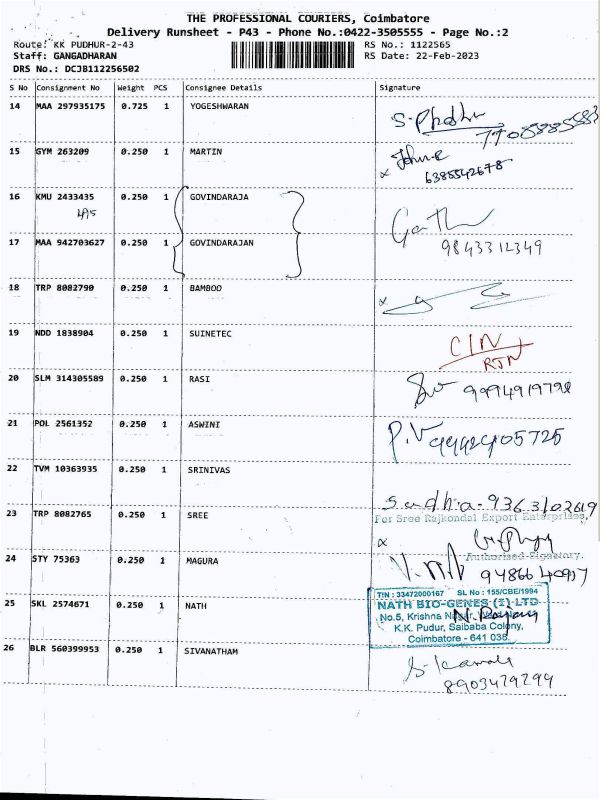 THE PROFESSIONAL COURIERS, Coimbatore
Delivery Runsheet - P43 - Phone No.:0422-3505555 - Page No.:2
Route: KK PUDHUR-2-43 RS No.: 1122565
Staff: GANGADHARAN RS Date: 22-Feb-2023
DRS No.: DCJB112256502
S No Consignment No Weight PCS Consignee Details Signature
14 MAA 297935175 0.725 1 YOGESHWARAN
15 GYM 263209 0.250 1 MARTIN
6385542678
16 KMU 2433435 0.250 1 GOVINDARAJA
9843312349
17 MAA 942703627 0.250 1 GOVINDARAJAN
18 TRP 8082790 0.250 1 BAMBOO
19 NDD 1838904 0.250 1 SUINETEC
CIN
RJN
20 SLM 314305589 0.250 1 RASI
9994919798
21 POL 2561352 0.250 1 ASWINI
P.V
22 TVM 10363935 0.250 1 SRINIVAS
Sandhia-9363102619
23 TRP 8082765 0.250 1 SREE
For Sree Rajkondal Export Enterprises,
Authorised Signatory.
24 STY 75363 0.250 1 MAGURA
9486640907
25 SKL 2574671 0.250 1 NATH
TIN : 33472000167 SL No : 155/CBE/1994
NATH BIO-GENES (I) LTD
No.5, Krishna Nagar,
K.K. Pudur, Saibaba Colony,
Coimbatore - 641 038.
26 BLR 560399953 0.250 1 SIVANATHAM
8903479299